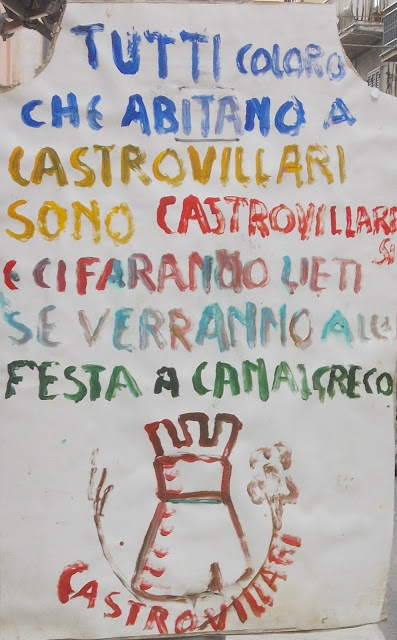 TUTTI COLORO
CHE ABITANO A
CASTROVILLARI
SONO CASTROVILLARE
SI
E CI FARANNO LIETI
SE VERRANNO ALLA
FESTA A CANALGRECO
CASTROVILLARI